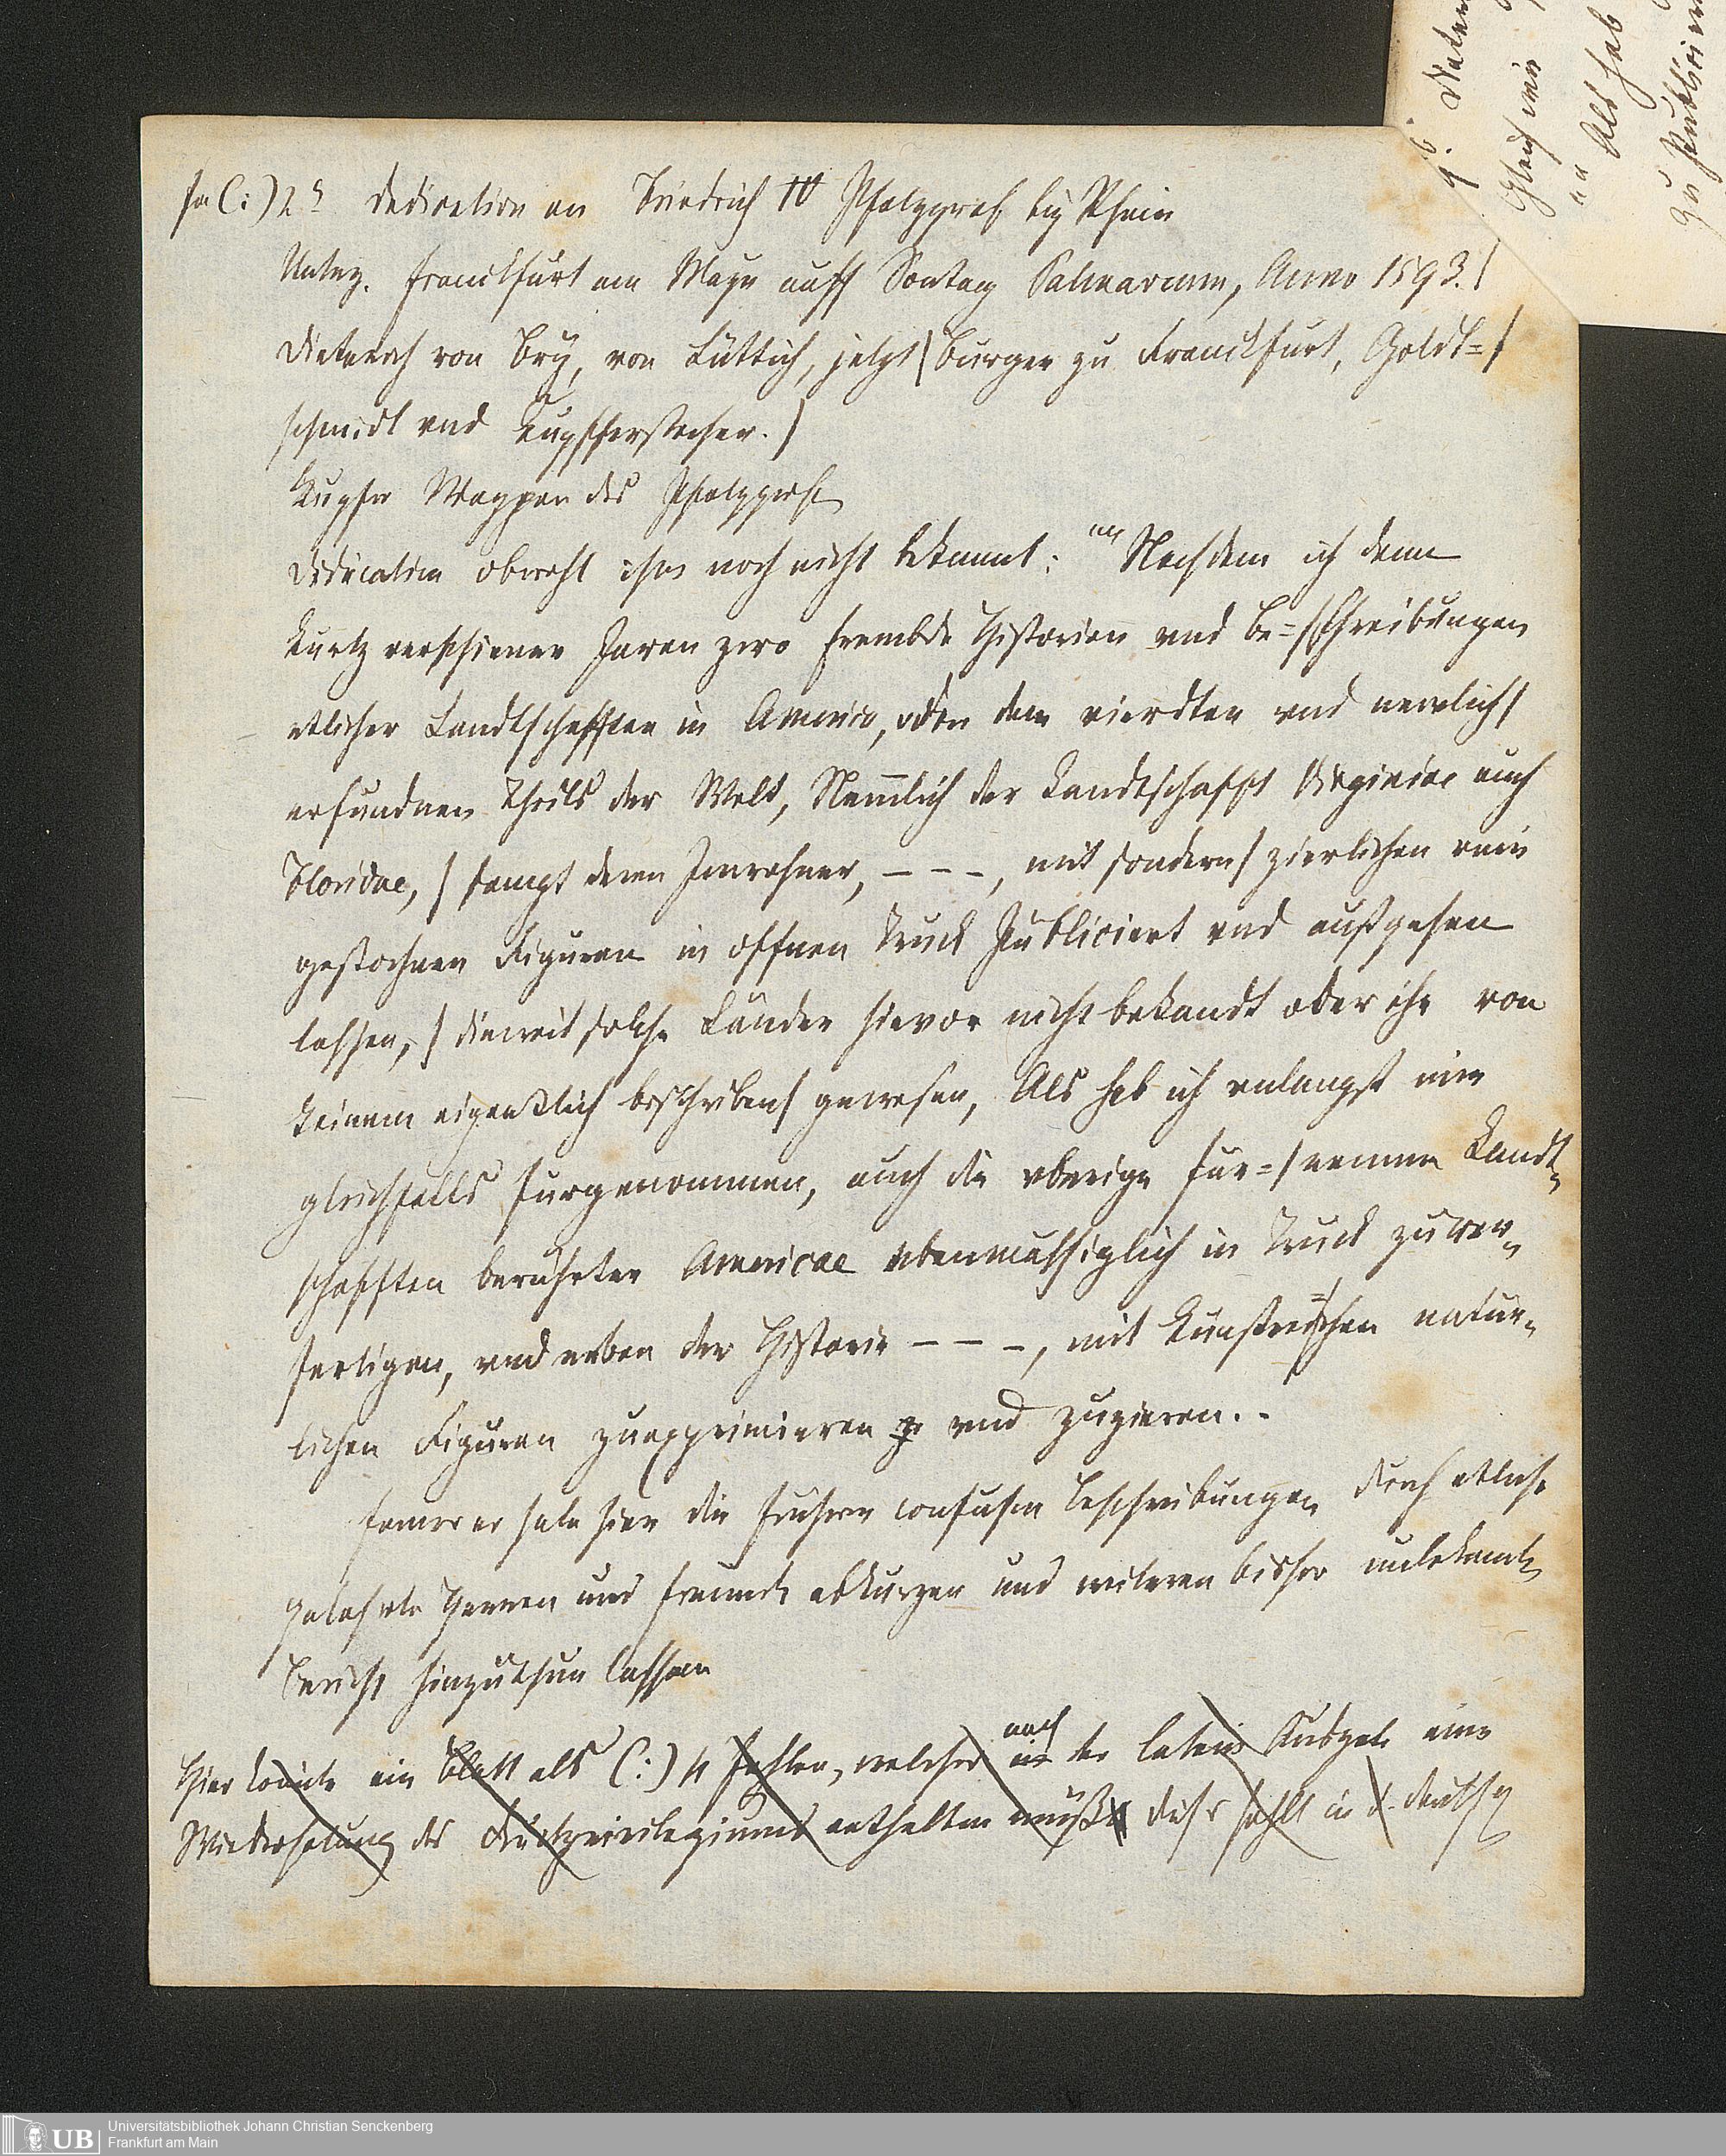 fa (:) 2 a Dedication an Friedrich IV Pfalzgraf bey Rhein
Unterz. Franckfurt am Mayn auff Sontag Palmarum, Anno 1593. |
Dieterich von Bry, von Lüttich, jetzt | Burger zu Franckfurt, Goldt= |
schmidt vnd Kupfferstecher. |
Kupfer Wappen des Pfalzgrafen
Dedication obwohl ihm noch nicht bekannt: „„ Nach dem ich dann
kurtz verschiener Jaren zwo frembde Historien vnd Be= | schreibungen
etlicher Landtschafften in America, oder dem vierdten vnd newlich |
erfundnen Theils der Welt, Nem̄lich der Landtschafft Virginiae auch
Floridae, | sampt deren Inwohner, – – –, mit sondern | zierlichen rein
gestochnen Figuren in offnen Truck Publiciert vnd außgehen
lassen, | dieweil solche Länder hievor nicht bekandt oder ihe von
keinem eigentlich beschriben | gewesen, Als hab ich vnlangst mir
gleichfalls furgenommen, auch die vberige für= | nemme Landt-
schafften berührter Americae ebenmässiglich in Truck zu ver-
fertigen, vnd neben der Historie – – –, mit Kunstreichen natur-
lichen Figuren zuexprimieren vnd zuzieren. -
ferner er habe hier die frühern confusen Beschreibungen durch etliche
gelehrte Herren und Freunde abkurzen und weiteren bisher unbekannte
Bericht hinzuthun lassen
Hier könnte ein Blatt als (:) 4 fehlen, welches nach der latein Ausgabe eine
Wiederholung des Druckprivilegiums enthalten müßte dies fehlt in d. deutsch
96.
Gleich
„„ Als hab
zu Publicieren
UB Universitätsbibliothek Johann Christian Senckenberg
Frankfurt am Main